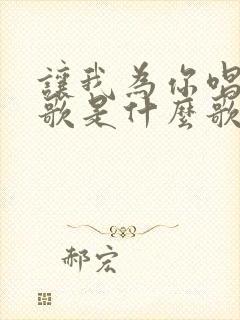 讓我為你唱
歌是什麼歌
郝宏